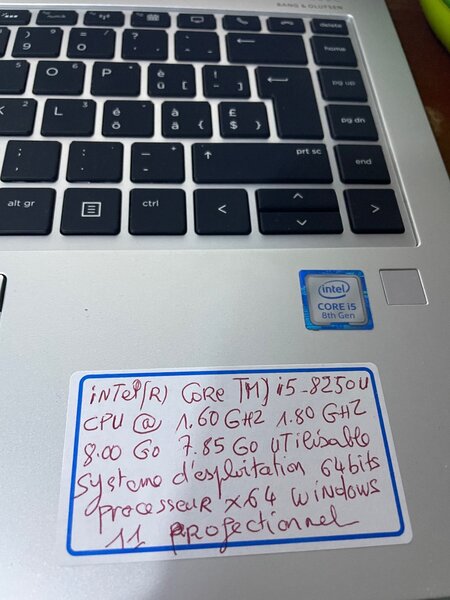 BANG & OLUFSEN
delete
) 9 = 0 ? ' ` ^ home
O P è ü [ ! ¨ ] pg up
K L é ö à ä { £ $ } pg dn
; , : . _ - prt sc end
alt gr ctrl < >
intel
CORE i5
8th Gen
iNTel(R) CoRe TM) i5-8250U
CPU @ 1.60 GHZ 1.80 GHZ
8.00 Go 7.85 Go UTilisable
Système d'exploitation 64bits
processeur x64 Windows
11 Profectionnel